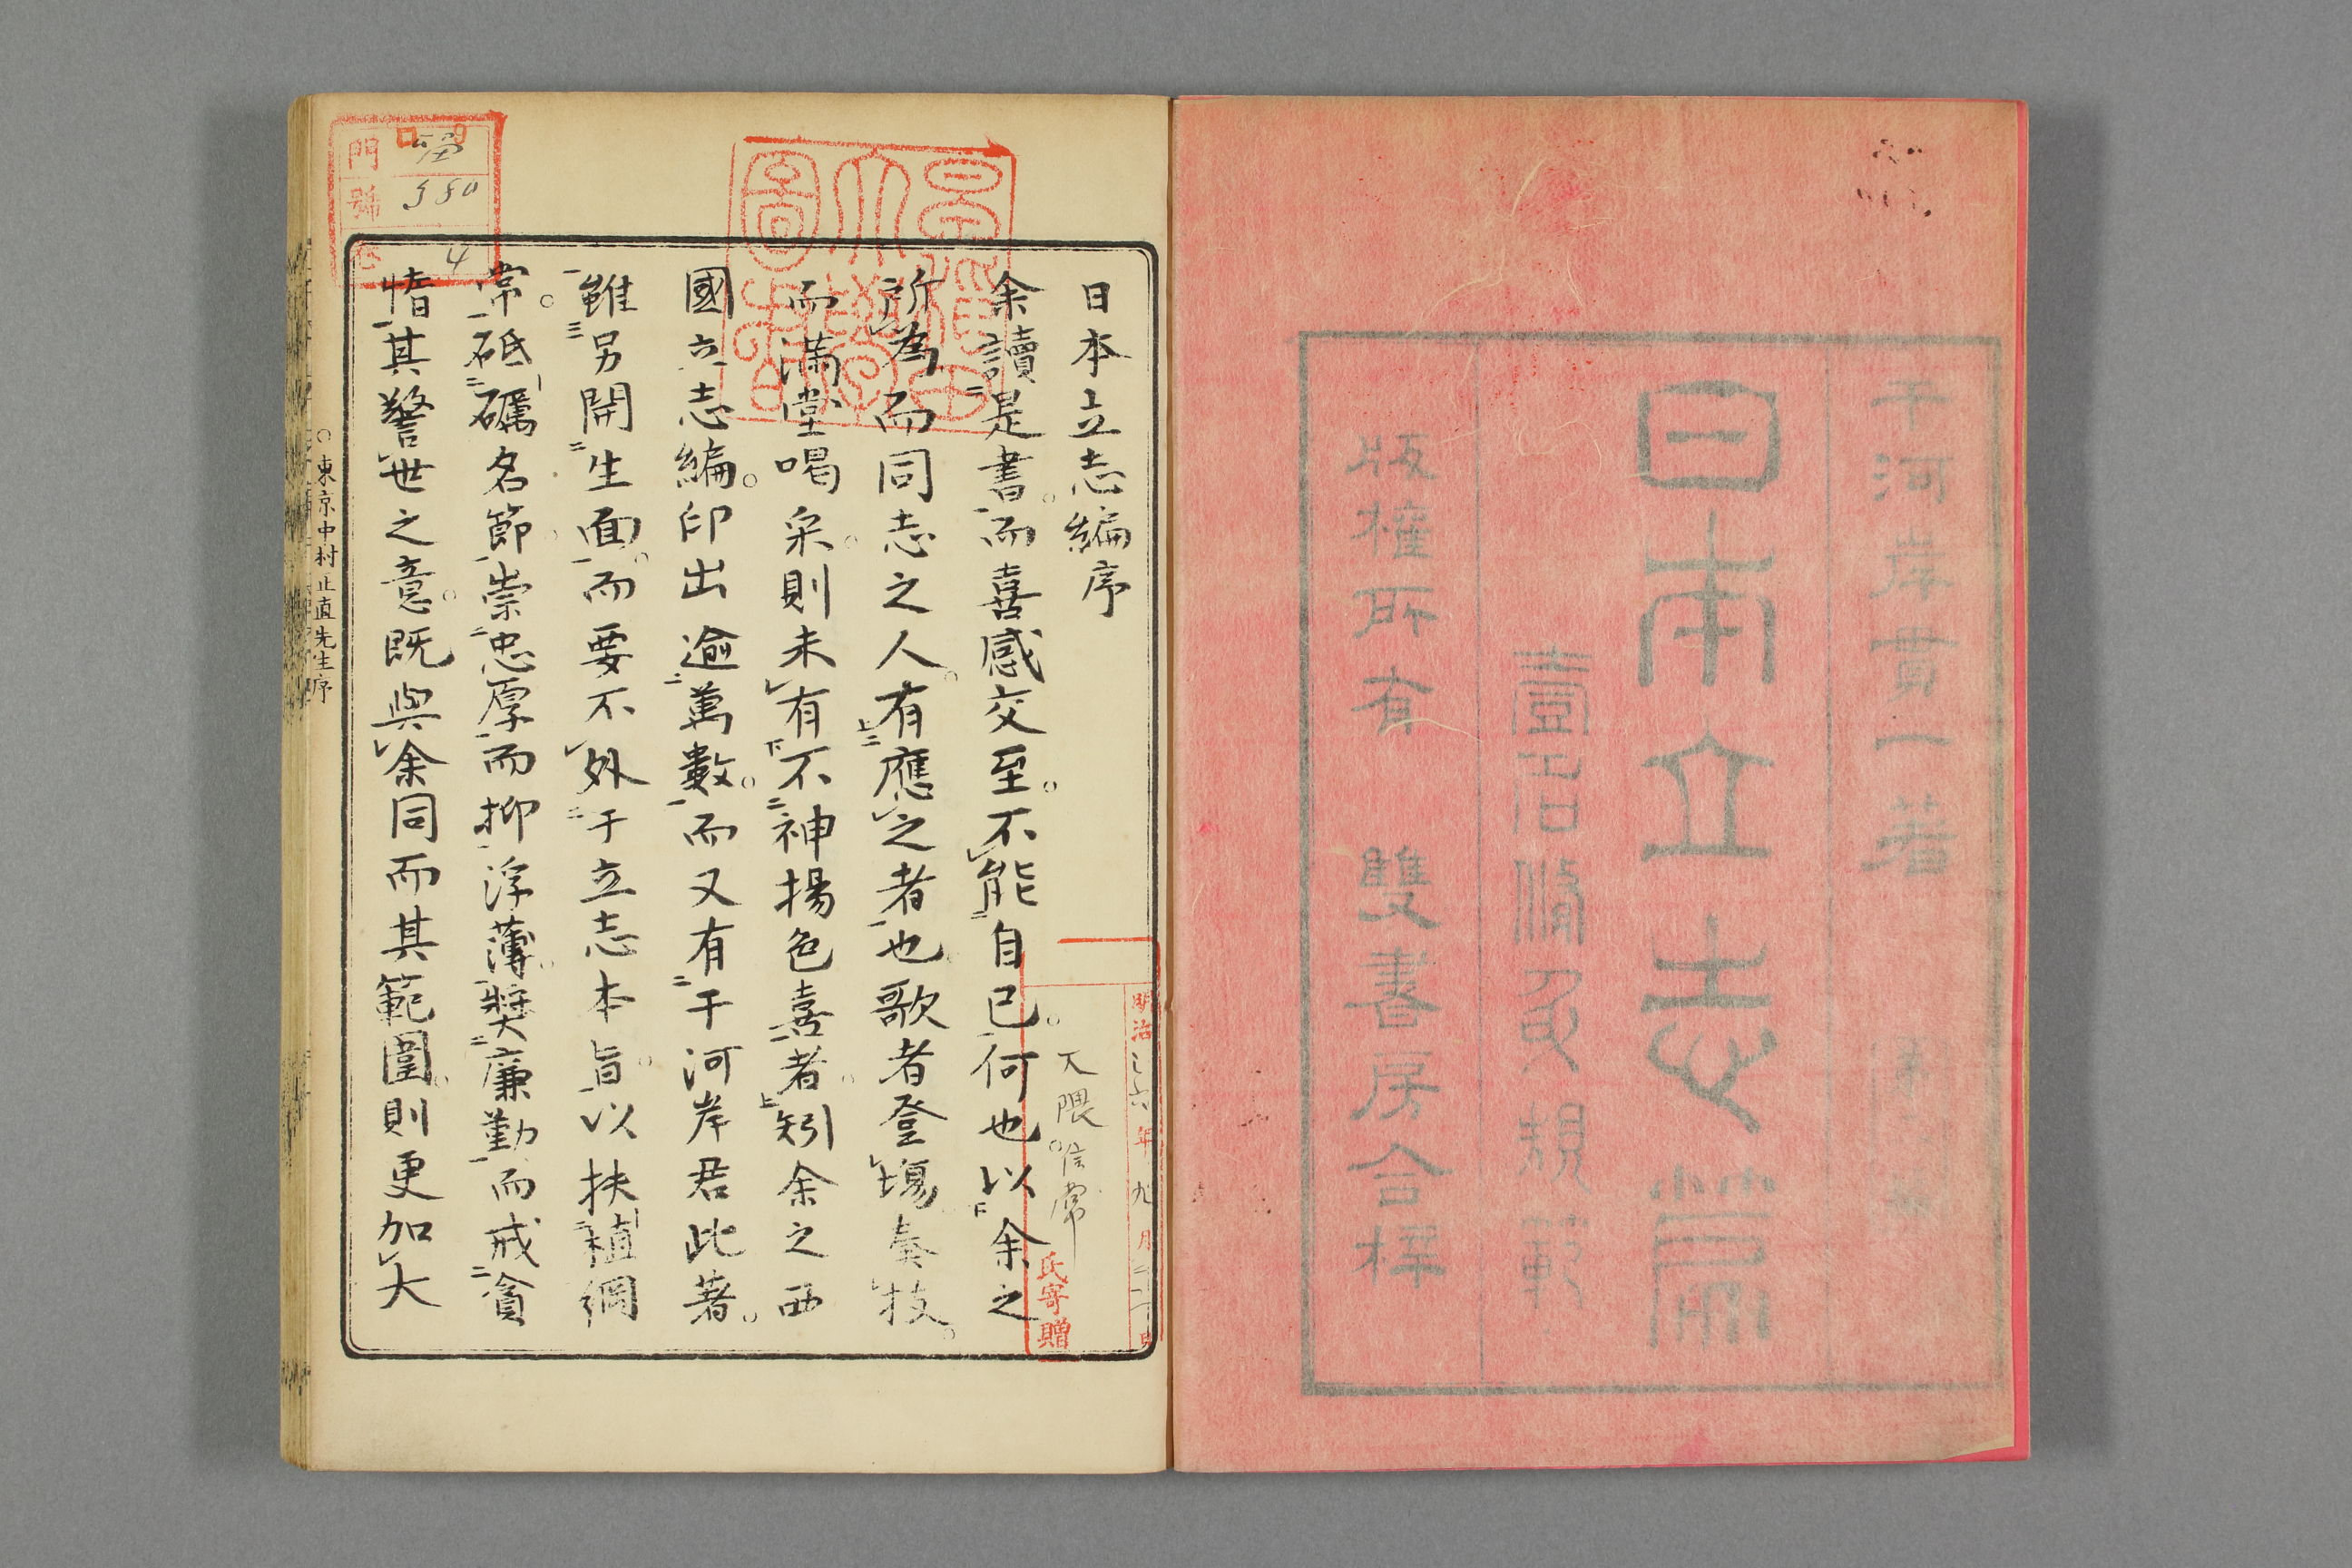 干河岸貫一著
日本立志編
一名脩身規範
版權所有 雙書房合梓
日本立志編序
余讀是書。而喜感交至。不能自已。何也以余之
所為而同志之人。有應之者也。歌者登場奏技。
而滿堂喝采。則未有不神揚色喜者。矧余之西
國立志編。印出逾萬數。而又有干河岸君此著。
雖另開生面。而要不外于立志本旨。以扶植綱
常。砥礪名節。崇忠厚而抑浮薄。獎廉勤而戒貪
惰其警世之意。既與余同而其範圍。則更加大
○東京中村正直先生序
明治三六年九月二十日
大隈信常
氏寄贈
門
號 580
卷 4